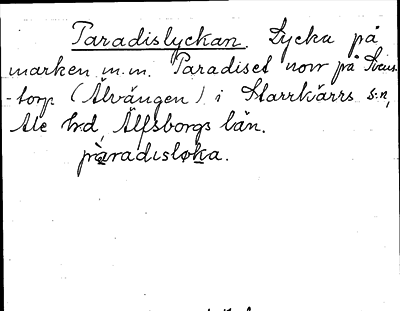 Paradislyckan. Lycka på
marken m.m. Paradiset norr på Svens-
-torp (Älvängen) i Starrkärrs s:n,
Ale hd, Älfsborgs län.
paradisløka.